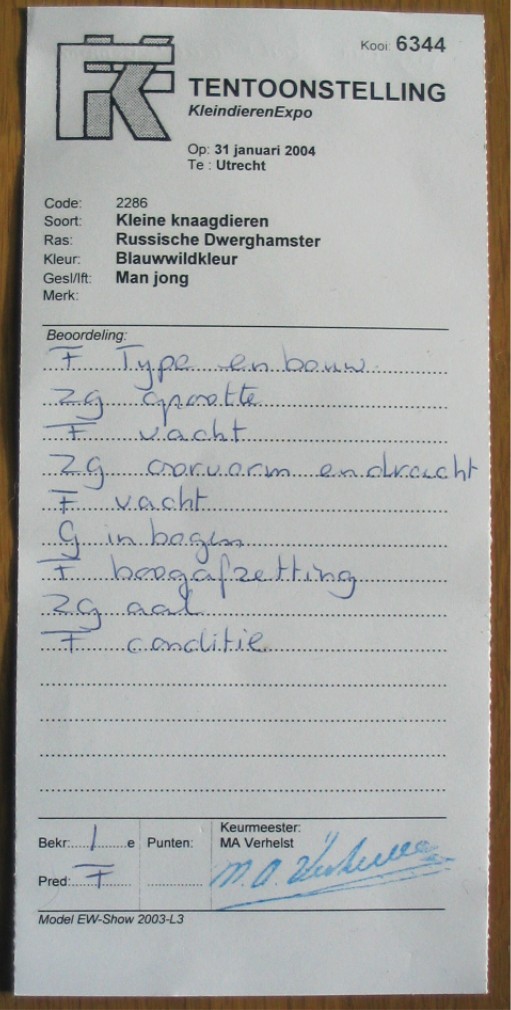 Kooi: 6344
FK
TENTOONSTELLING
KleindierenExpo
Op: 31 januari 2004
Te : Utrecht
Code: 2286
Soort: Kleine knaagdieren
Ras: Russische Dwerghamster
Kleur: Blauwwildkleur
Gesl/lft: Man jong
Merk:
Beoordeling:
F Type en bouw
ZG grootte
F vacht
ZG oorvorm en dracht
F vacht
G in bogen
F boogafzetting
ZG aal
F conditie
Bekr: 1 e Punten:
Keurmeester:
MA Verhelst
Pred: F
M.A. Verhelst
Model EW-Show 2003-L3